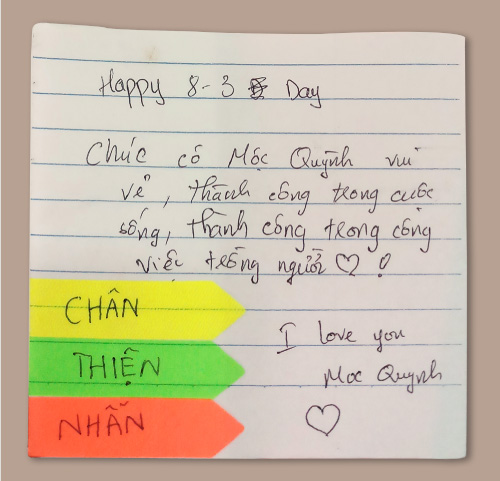 Happy 8-3 Day
Chúc cô Mộc Quỳnh vui
vẻ, thành công trong cuộc
sống, thành công trong công
việc trồng người ♡ !
CHÂN
THIỆN
NHẪN
I love you
Moc Quynh
♡